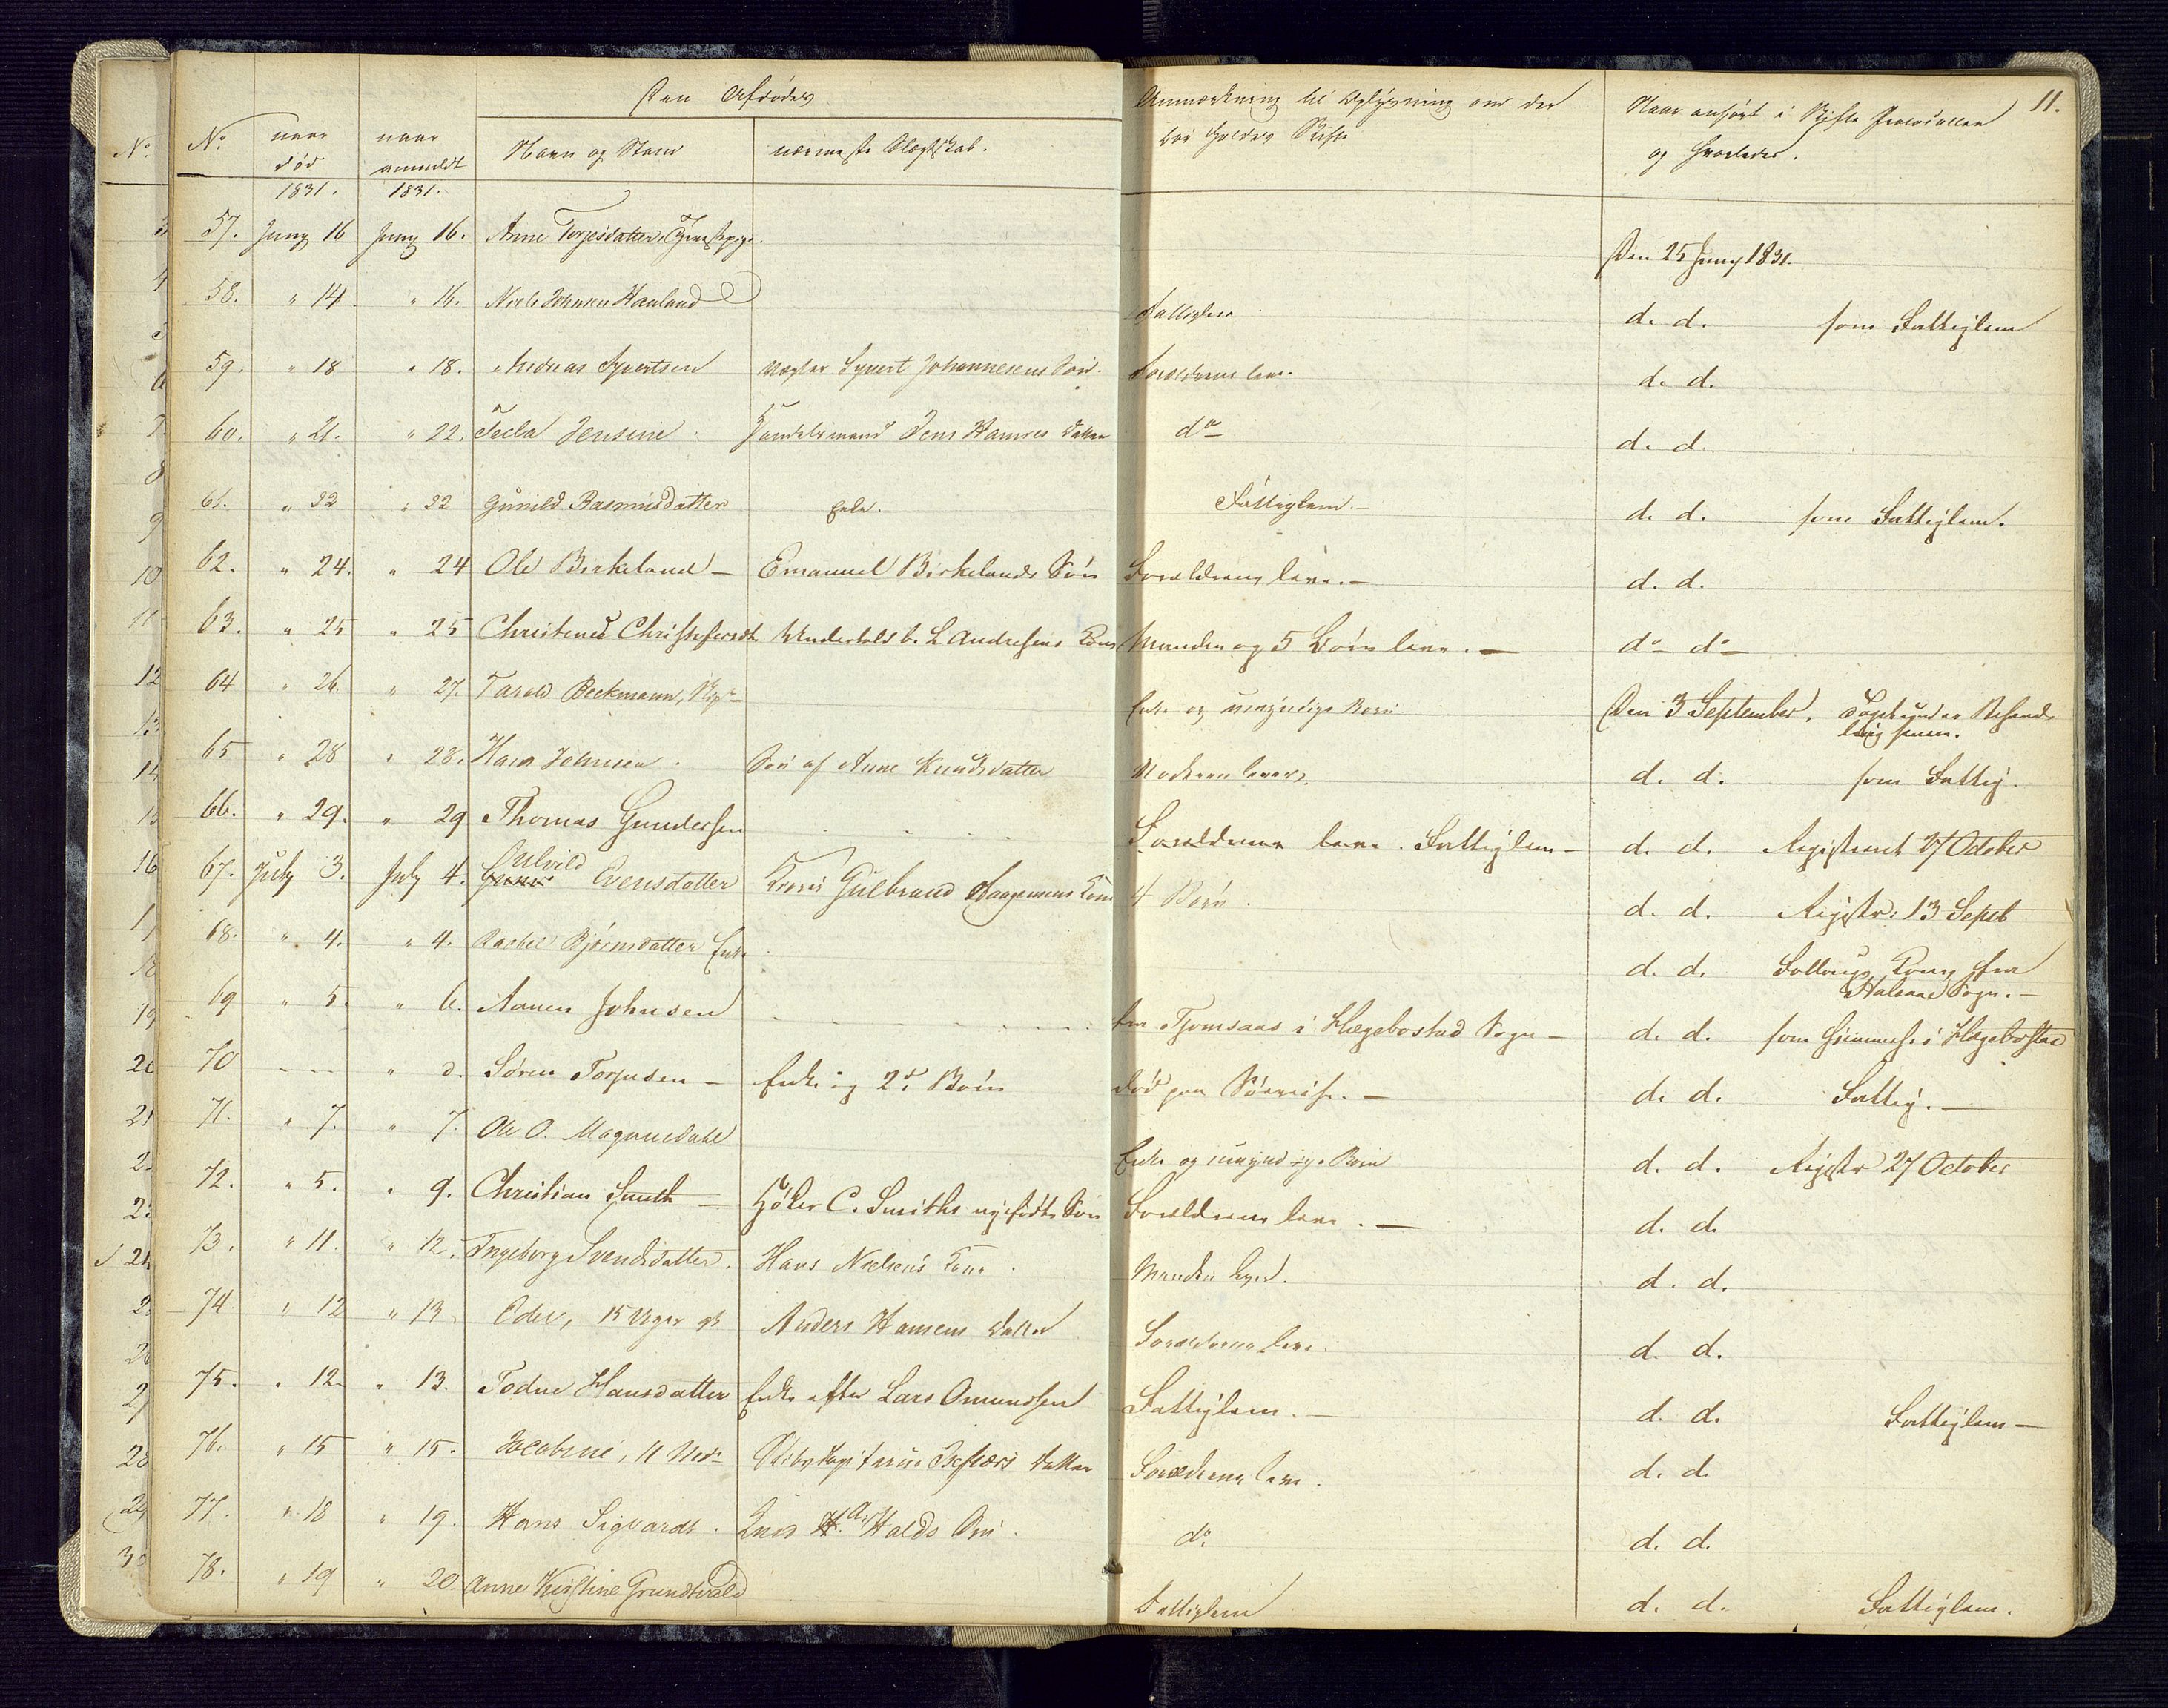 11.
Den Afdødes
Anmærkning til Oplysning om der bør holdes Skifte
Naar anført i Skifte Protocollen og hvorledes.
No. naar død naar anmeldt Navn og Stand nærmeste Slægtskab.
1831. 1831.
57. Juny 16 Juny 16. Anne Torjesdatter, Tjenestepige. Den 25 Juny 1831.
58. " 14 " 16. Niels Johnsen Haaland Fattiglem d. d. som Fattiglem
59. " 18 " 18. Andreas Syvertsen Vægter Syvert Johannesens Søn. Forældrene leve. d. d.
60. " 21. " 22. Tecla Jensine Handelsmand Jens Hansens Datter do d. d.
61. " 22 " 22 Gunild Rasmusdatter Enke. Fattiglem. - d. d. som Fattiglem.
62. " 24. " 24 Ole Birkeland - Emanuel Birkelands Søn Forældrene leve. - d. d.
63. " 25 " 25 Christense Christophersdtr L. Andresens Kone Manden og 5 Børn leve. - do do
64 " 26. " 27. Tarald Beckmann, Enke og umyndige Børn Den 3 September.
65 " 28 " 28. Hans Johnsen. Søn af Anne Knudsdatter Moderen lever. d. d. som Fattig.
66. " 29. " 29 Thomas Gundersen Forældrene leve. Fattiglem - d. d. Registreret 27 October
67. July 3. July 4. Gulvild Evensdatter Gulbrand Aagensens Kone 4 Børn. d. d. Registr: 13 Septb
68. " 4. " 4. Rachel Bjørnsdatter Enke d. d. fra Halsaae Sogn. -
69 " 5. " 6. Aanen Johnsen fra Tjomsaas i Hægebostad Sogn - d. d. som hjemmeh: i Hægebostad
70 " d. Søren Torjusen - Enke og 2de Børn død paa Søereise. - d. d. Fattig. -
71. " 7. " 7. Ole O. Magnusdahl Enke og umyndige Børn d. d. Registr 27 October
72. " 5. " 9. Christian Smith - Høker C. Smiths nyefødte Søn Forældrene leve. - d. d.
73. " 11. " 12. Ingeborg Svendsdatter. Hans Nielsens Kone. Manden lever. d. d.
74 " 12 " 13. Edel, 15 Uger gl Anders Hansens Datter Forældrene leve. d. d.
75. " 12. " 13. Todne Hansdatter Enke efter Lars Omundsen Fattiglem. - d. d. Fattiglem -
76. " 15 " 15. Jacobine, 11 Mdr Datter Forældrene leve. d. d.
77. " 18 " 19. Hans Sigvardt. A. Halds Søn. do d. d.
78. " 19 " 20 Anne Kirstine Grundtvald Fattiglem d. d. Fattiglem.